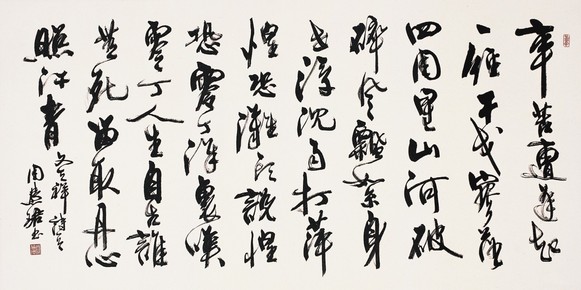 辛苦遭逢起
一經干戈寥落
四周星山河破
碎風飄絮身
世浮沉雨打萍
惶恐灘頭說惶
恐零丁洋裏嘆
零丁人生自古誰
無死留取丹心
照汗青
文天祥詩